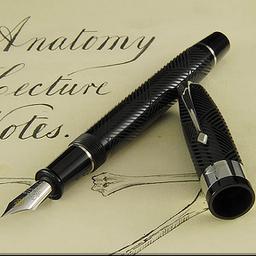 Anatomy
Lecture
Notes.